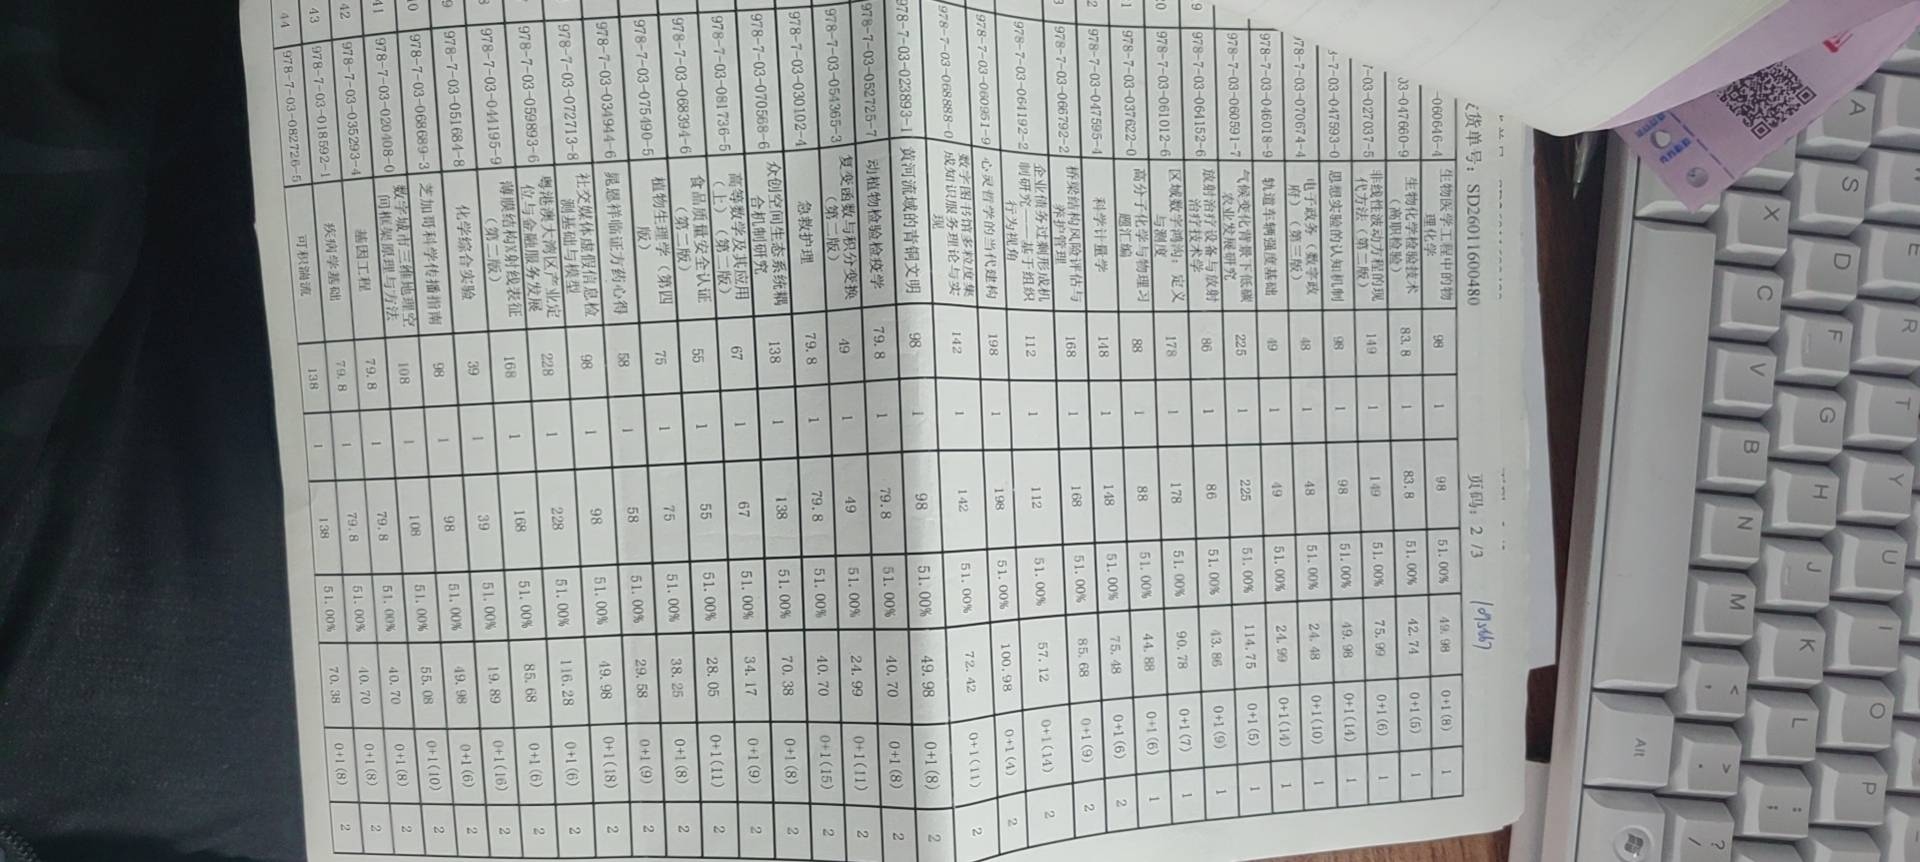 货单号: SD26011600480 页码: 2 /3
-060646-4 生物医学工程中的物理化学 98 1 98 51.00% 49.98 0+1(8) 1
03-047660-9 生物化学检验技术(高职检验) 83.8 1 83.8 51.00% 42.74 0+1(5) 1
7-03-027037-5 非线性波动方程的现代方法(第二版) 149 1 149 51.00% 75.99 0+1(6) 1
8-7-03-047593-0 思想实验的认知机制 98 1 98 51.00% 49.98 0+1(4) 1
78-7-03-070674-4 电子政务(数字政府)(第三版) 48 1 48 51.00% 24.48 0+1(10) 1
978-7-03-046018-9 轨道车辆强度基础 49 1 49 51.00% 24.99 0+1(14) 1
978-7-03-060591-7 气候变化背景下低碳农业发展研究 225 1 225 51.00% 114.75 0+1(5) 1
9 978-7-03-064152-6 放射治疗设备与放射治疗技术学 86 1 86 51.00% 43.86 0+1(9) 1
0 978-7-03-061012-6 区域数字鸿沟:定义与测度 178 1 178 51.00% 90.78 0+1(7) 1
1 978-7-03-037622-0 高分子化学与物理习题汇编 88 1 88 51.00% 44.88 0+1(6) 1
2 978-7-03-047595-4 科学计量学 148 1 148 51.00% 75.48 0+1(6) 2
3 978-7-03-066792-2 桥梁结构风险评估与养护管理 168 1 168 51.00% 85.68 0+1(9) 2
978-7-03-064192-2 企业债务过剩形成机制研究——基于组织行为视角 112 1 112 51.00% 57.12 0+1(14) 2
978-7-03-060951-9 心灵哲学的当代建构 198 1 198 51.00% 100.98 0+1(4) 2
978-7-03-068888-0 数字图书馆多粒度集成知识服务理论与实现 142 1 142 51.00% 72.42 0+1(11) 2
978-7-03-023893-1 黄河流域的青铜文明 98 1 98 51.00% 49.98 0+1(8) 2
978-7-03-052725-7 动植物检验检疫学 79.8 1 79.8 51.00% 40.70 0+1(8) 2
978-7-03-054365-3 复变函数与积分变换(第二版) 49 1 49 51.00% 24.99 0+1(11) 2
978-7-03-030102-4 急救护理 79.8 1 79.8 51.00% 40.70 0+1(15) 2
978-7-03-070568-6 众创空间生态系统耦合机制研究 138 1 138 51.00% 70.38 0+1(8) 2
978-7-03-081736-5 高等数学及其应用(上)(第二版) 67 1 67 51.00% 34.17 0+1(9) 2
978-7-03-068394-6 食品质量安全认证(第二版) 55 1 55 51.00% 28.05 0+1(11) 2
978-7-03-075490-5 植物生理学(第四版) 75 1 75 51.00% 38.25 0+1(8) 2
978-7-03-034944-6 晁恩祥临证方药心得 58 1 58 51.00% 29.58 0+1(9) 2
978-7-03-072713-8 社交媒体虚假信息检测基础与模型 98 1 98 51.00% 49.98 0+1(18) 2
978-7-03-059893-6 粤港澳大湾区产业定位与金融服务发展 228 1 228 51.00% 116.28 0+1(6) 2
978-7-03-044195-9 薄膜结构X射线表征(第二版) 168 1 168 51.00% 85.68 0+1(6) 2
9 978-7-03-051684-8 化学综合实验 39 1 39 51.00% 19.89 0+1(16) 2
0 978-7-03-068689-3 芝加哥科学传播指南 98 1 98 51.00% 49.98 0+1(6) 2
41 978-7-03-020408-0 数字城市三维地理空间框架原理与方法 108 1 108 51.00% 55.08 0+1(10) 2
42 978-7-03-035293-4 基因工程 79.8 1 79.8 51.00% 40.70 0+1(8) 2
43 978-7-03-018592-1 疾病学基础 79.8 1 79.8 51.00% 40.70 0+1(8) 2
44 978-7-03-082726-5 可积湍流 138 1 138 51.00% 70.38 0+1(8) 2
A S D F G H J K L ;
X C V B N M < , > . ? /
E R T Y U I O P
Alt